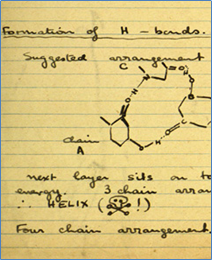 Formation of H - bonds.
Suggested arrangement
C
chain
A
next layer sits on to
energy. 3 chain arran
∴ HELIX ( ☠ !)
Four chain arrangement.